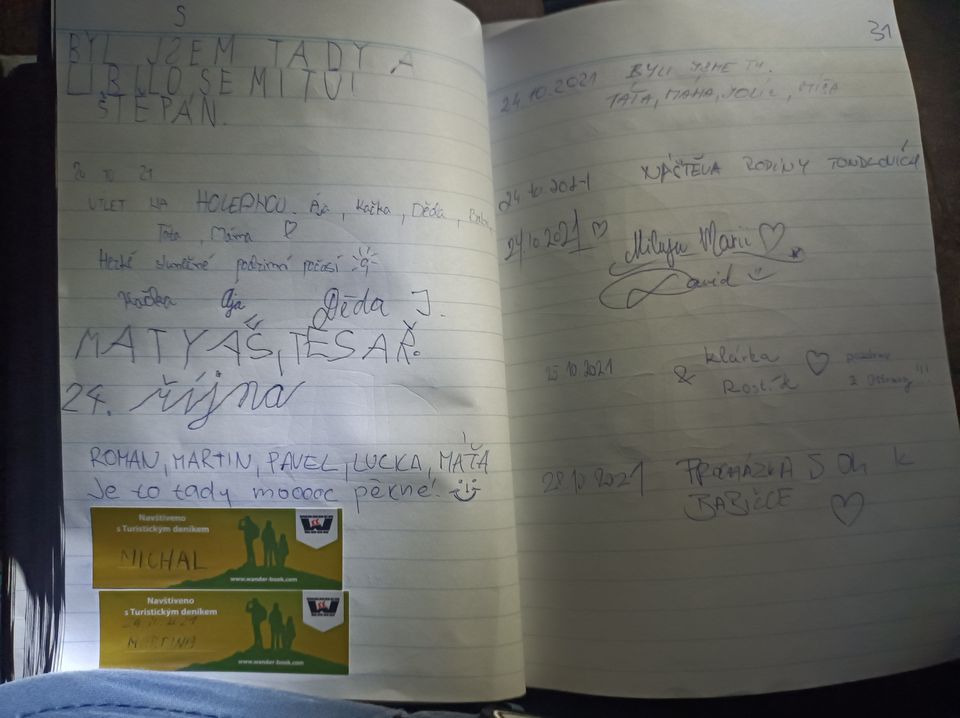 S
BYL JSEM TADY A
LIBILO SE MI TU!
ŠTĚPÁN.
20 10 21
VÝLET NA HOLEDNOU. Ája, Kačka, Děda,
Táta, Máma
Hezké slunečné podzimní počasí
Kačka Ája Děda J.
MATYÁŠ, TESAŘ.
24. října
ROMAN, MARTIN, PAVEL, LUCKA, MÁŤA
Je to tady moooc pěkné!
Navštíveno
s Turistickým deníkem
MICHAL
www.wander-book.com
Navštíveno
s Turistickým deníkem
MARTINA
www.wander-book.com
31
24.10.2021 BYLI JSME TU.
TÁŤA, MÁMA,
24.10.2021 NÁŠTĚVA RODINY
24.10.2021 Miluju Marii
David
25.10.2021 & Klárka
Rostík
28.10.2021 PROCHÁZKA S K
BABIČCE